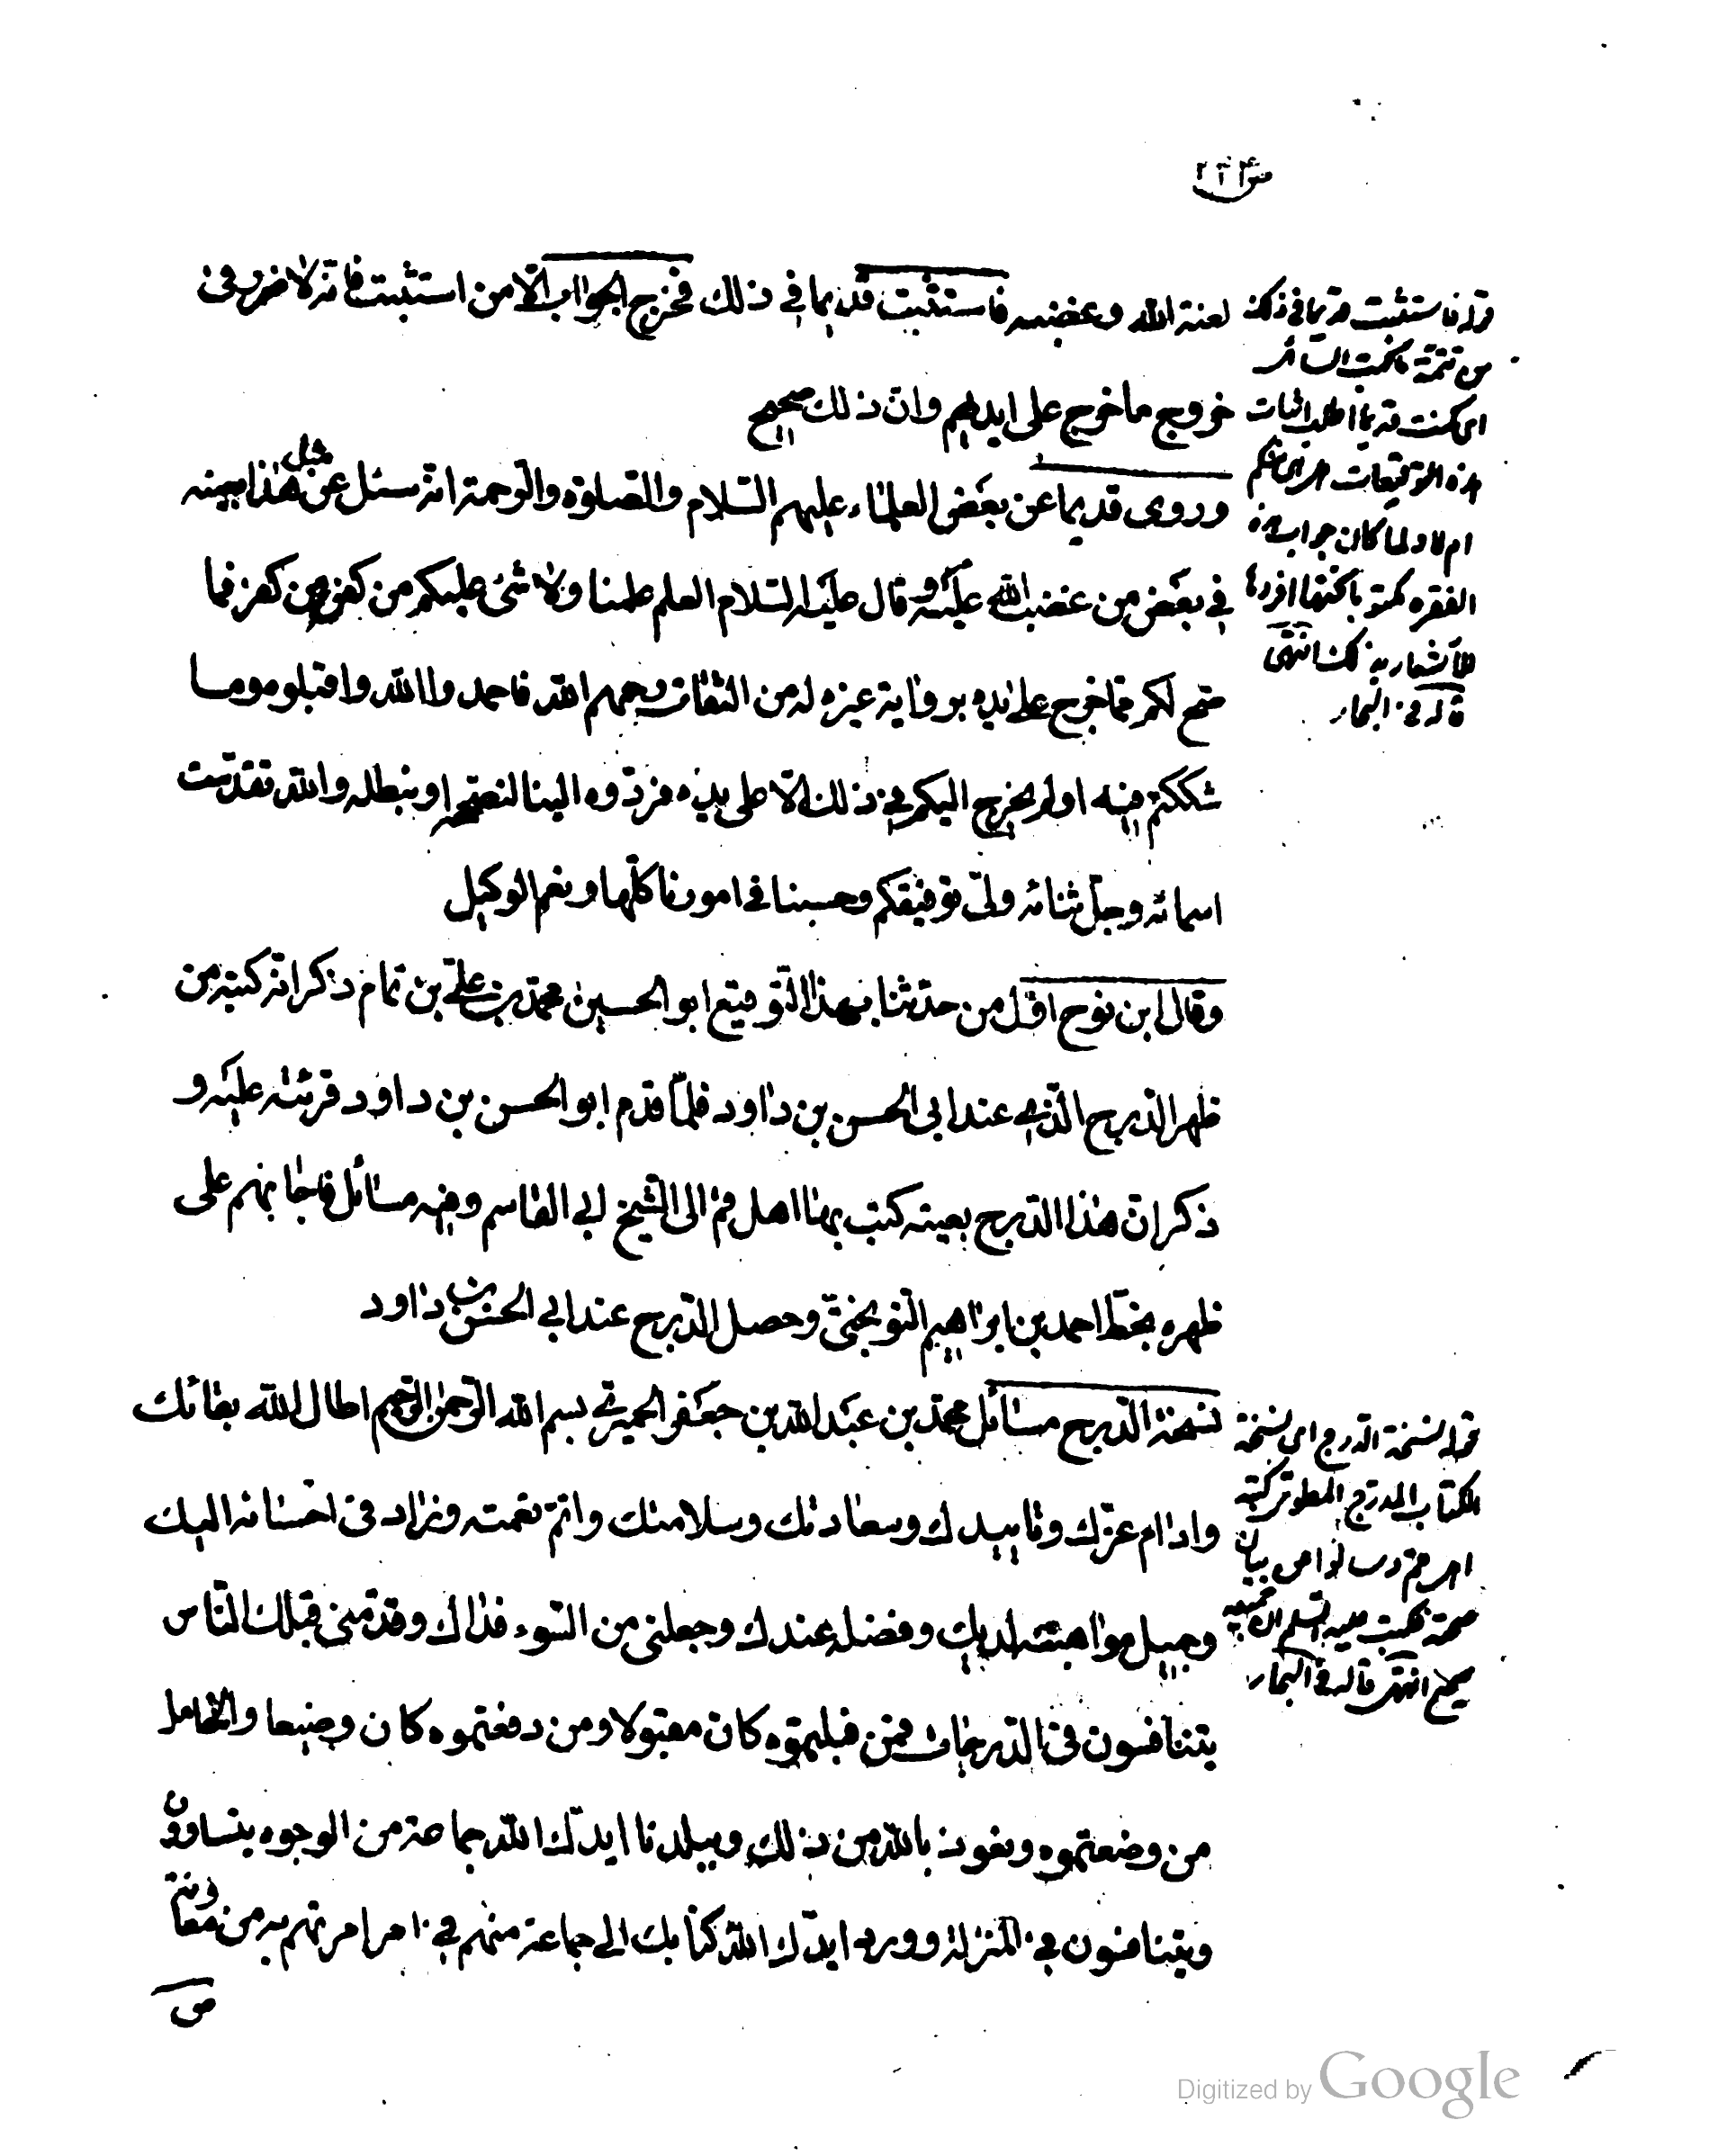 لعنة الله وغضبه فاستثبت قديما في ذلك فخرج الجواب الا من استثبت فانه لا ضرر فى
خروج ما خرج على ايديهم وان ذلك صحيح
وروى قديما عن بعض العلماء عليهم السلام والصلوة والرحمة انه سئل عن مثل هذا بعينه
فى بعض من غضب الله عليه و قال عليه السلام العلم علمنا ولا شئ عليكم من كفر من كفر فما
صح لكم مما خرج على يده برواية غيره له من الثقات رحمهم الله فاحمدوا الله واقبلوه وما
شككتم فيه او لم يخرج اليكم فى ذلك الا على يده فردوه الينا لنصححه او نبطله والله تقدست
اسمائه وجل ثنائه ولى توفيقكم وحسبنا فى امورنا كلها ونعم الوكيل
وقال ابن نوح اول من حدثنا بهذا التوقيع ابو الحسين محمد بن على بن تمام ذكر انه كتبه من
ظهر الدرج الذى عند ابى الحسن بن داود فلما قدم ابو الحسن بن داود قرئته عليه و
ذكر ان هذا الدرج بعينه كتب بها اهل قم الى الشيخ ابى القاسم وفيه مسائل فاجابهم على
ظهره بخط احمد بن ابراهيم النوبختى وحصل الدرج عند ابى الحسن بن داود
نسخة الدرج مسائل محمد بن عبد الله بن جعفر الحميرى بسم الله الرحمن الرحيم اطال الله بقائك
وادام عزك وتاييدك وسعادتك وسلامتك واتم نعمته وزاد فى احسانه اليك
وجميل مواهبه لديك وفضله عندك وجعلنى من السوء فداك وقدمنى قبلك الناس
يتنافسون فى الدرجات فمن قبلتموه كان مقبولا ومن دفعتموه كان وضيعا والخامل
من وضعتموه ونعوذ بالله من ذلك وببلدنا ايدك الله جماعة من الوجوه يتساوون
ويتنافسون فى المنزلة وورد ايدك الله كتابك الى جماعة منهم فى امر امرتهم به من معاونة
ص
قوله فاستثبت قديما فى ذلك
من تتمة ما كتب السائل
اى كنت قديما اطلب اثبات
هذه التوقيعات هل هى منكم
ام لا ولما كان جواب هذه
الفقرة مكتوبا تحتها افردها
للاشعار بذلك انتهى
قاله فى البحار
قوله نسخة الدرج اى نسخة
الكتاب المدرج المطوى كتبه
اهل قم وسالوا عن بيان
صحته فكتب عليه السلم ان جميعه
صحيح انتهى قاله فى البحار
Digitized by Google